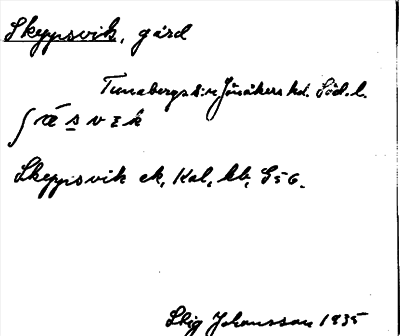 Skeppsvik, gård
Tunabergs sn. Jönåkers hd. Söd. l.
Skeppsvik ek, Kal, hb, G56.
Stig Johansson 1935